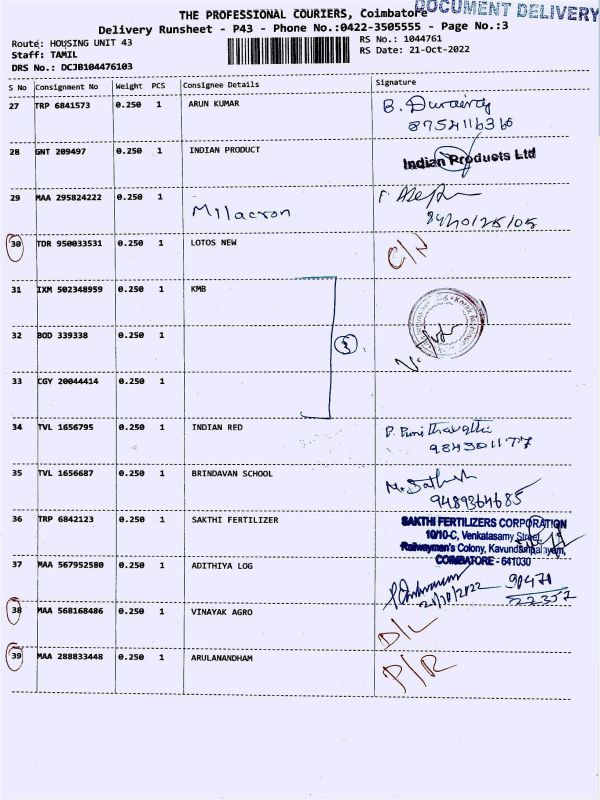 THE PROFESSIONAL COURIERS, Coimbatore
DOCUMENT DELIVERY
Delivery Runsheet - P43 - Phone No.:0422-3505555 - Page No.:3
Route: HOUSING UNIT 43
RS No.: 1044761
Staff: TAMIL
RS Date: 21-Oct-2022
DRS No.: DCJB104476103
S No Consignment No Weight PCS Consignee Details Signature
27 TRP 6841573 0.250 1 ARUN KUMAR B. Durairaj
8754116366
28 GNT 209497 0.250 1 INDIAN PRODUCT Indian Products Ltd
29 MAA 295824222 0.250 1 Milacron
30 TDR 950033531 0.250 1 LOTOS NEW
31 IXM 502348959 0.250 1 KMB
32 BOD 339338 0.250 1 3
33 CGY 20044414 0.250 1
34 TVL 1656795 0.250 1 INDIAN RED P. Punithavathi
9843011177
35 TVL 1656687 0.250 1 BRINDAVAN SCHOOL M. Sathish
9489364685
36 TRP 6842123 0.250 1 SAKTHI FERTILIZER SAKTHI FERTILIZERS CORPORATION
10/10-C, Venkatasamy Street,
Railwaymen's Colony, Kavundampalayam,
COIMBATORE - 641030
37 MAA 567952580 0.250 1 ADITHIYA LOG
21/10/2022
90470
52357
38 MAA 568168486 0.250 1 VINAYAK AGRO D/L
39 MAA 288833448 0.250 1 ARULANANDHAM P/R